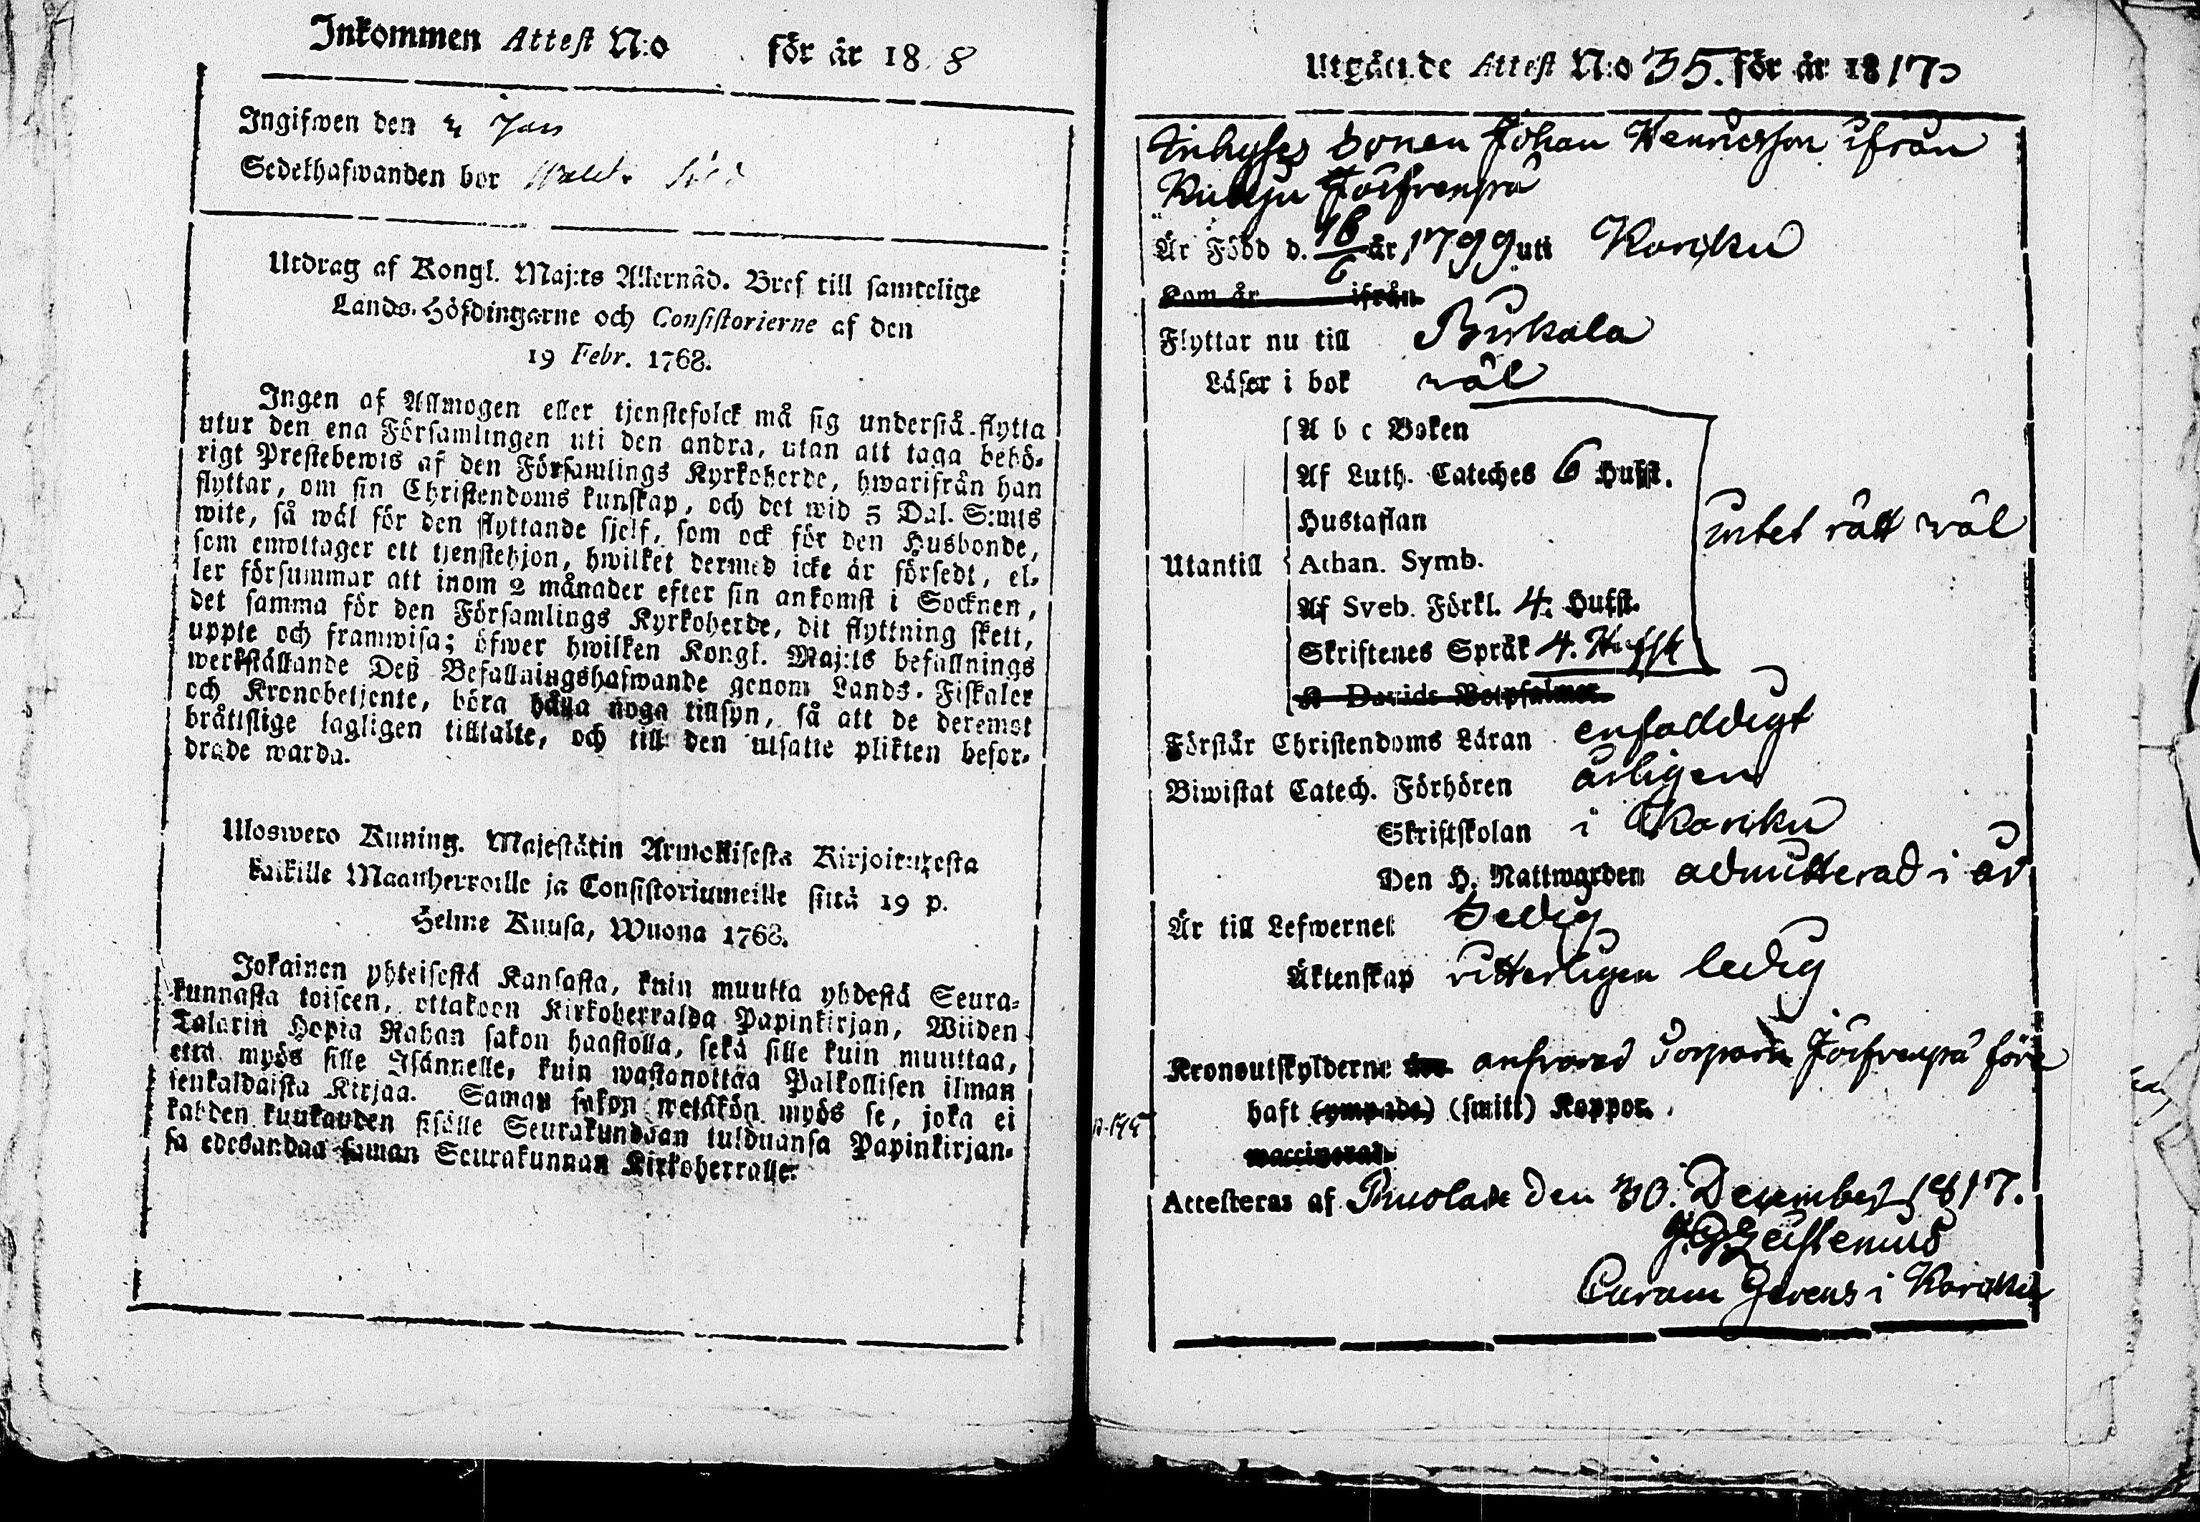 Inkommen Attest N:o för år 18 8
Ingifwen den 4 Jan
Sedelhafwanden bor
Utdrag af Kongl. Maj:ts Allernåd. Bref till samtelige
Lands-Höfdingarne och Consistorierne af den
19 Febr. 1768.
Ingen af Allmogen eller tjenstefolck må sig understå flytta
utur den ena Församlingen uti den andra, utan att taga behö-
rigt Prestebewis af den Församlings Kyrkoherde, hwarifrån han
flyttar, om sin Christendoms kunskap, och det wid 5 Dal. S:mts
wite, så wäl för den flyttande sjelf, som ock för den Husbonde,
som emottager ett tjenstehjon, hwilket dermed icke är försedt, el-
ler försummar att inom 2 månader efter sin ankomst i Socknen,
det samma för den Församlings Kyrkoherde, dit flyttning skett,
uppte och framwisa; öfwer hwilken Kongl. Maj:ts befallnings
werkställande Deß Befallningshafwande genom Lands-Fiskaler
och Kronobetjente, böra hålla noga tillsyn, så att de deremot
bråttslige lagligen tilltalte, och till den utsatte plikten befor-
drade warda.
Uloswero Kuning. Majestätin Armollisesta Kirjoituxesta
kaikille Maanherroille ja Consistoriumeille siitä 19 p.
Helme Kuusa, Wuona 1768.
Jokainen yhteisestä Kansasta, kuin muutta yhdestä Seura-
kunnasta toiseen, ottakoon Kirkoherralda Papinkirjan, Wiiden
Talarin Hopia Rahan sakon haastolla, sekä sille kuin muuttaa,
että myös sille Isännelle, kuin wastanottaa Palkollisen ilman
senkaldaista Kirjaa. Saman sakon wetäkön myös se, joka ei
kahden kuukauden sisälle Seurakundaan tulduansa Papinkirjan-
sa edesandaa saman Seurakunnan Kirkoherralle.
Utgående Attest N:o 35. för år 1817
Inhyses Sonen Johan Henricsson ifrån
Är Född d. 18/6 år 1799 uti Korpku
Kom år ifrån
Flyttar nu till Pirkala
Läser i bok wäl
A b c Boken
Af Luth. Cateches 6 Hufst.
Hustaflan
intet rätt wäl
Utantill Athan. Symb.
Af Sveb. Förkl. 4. Hufst.
Skriftenes Språk 4. Hufst
K Davids Botpsalmer
Förstår Christendoms Läran enfaldigt
Biwistat Catech. Förhören årligen
Skriftskolan i
Den H. Nattwarden admitterad i år
Är till Lefwernet Sedig
Äktenskap ledig
Kronoutskylderne ansvarar
haft (ympade) (smitt) Koppor.
waccinerad.
Attesteras af den 30. December 1817.
Curam Gerens i